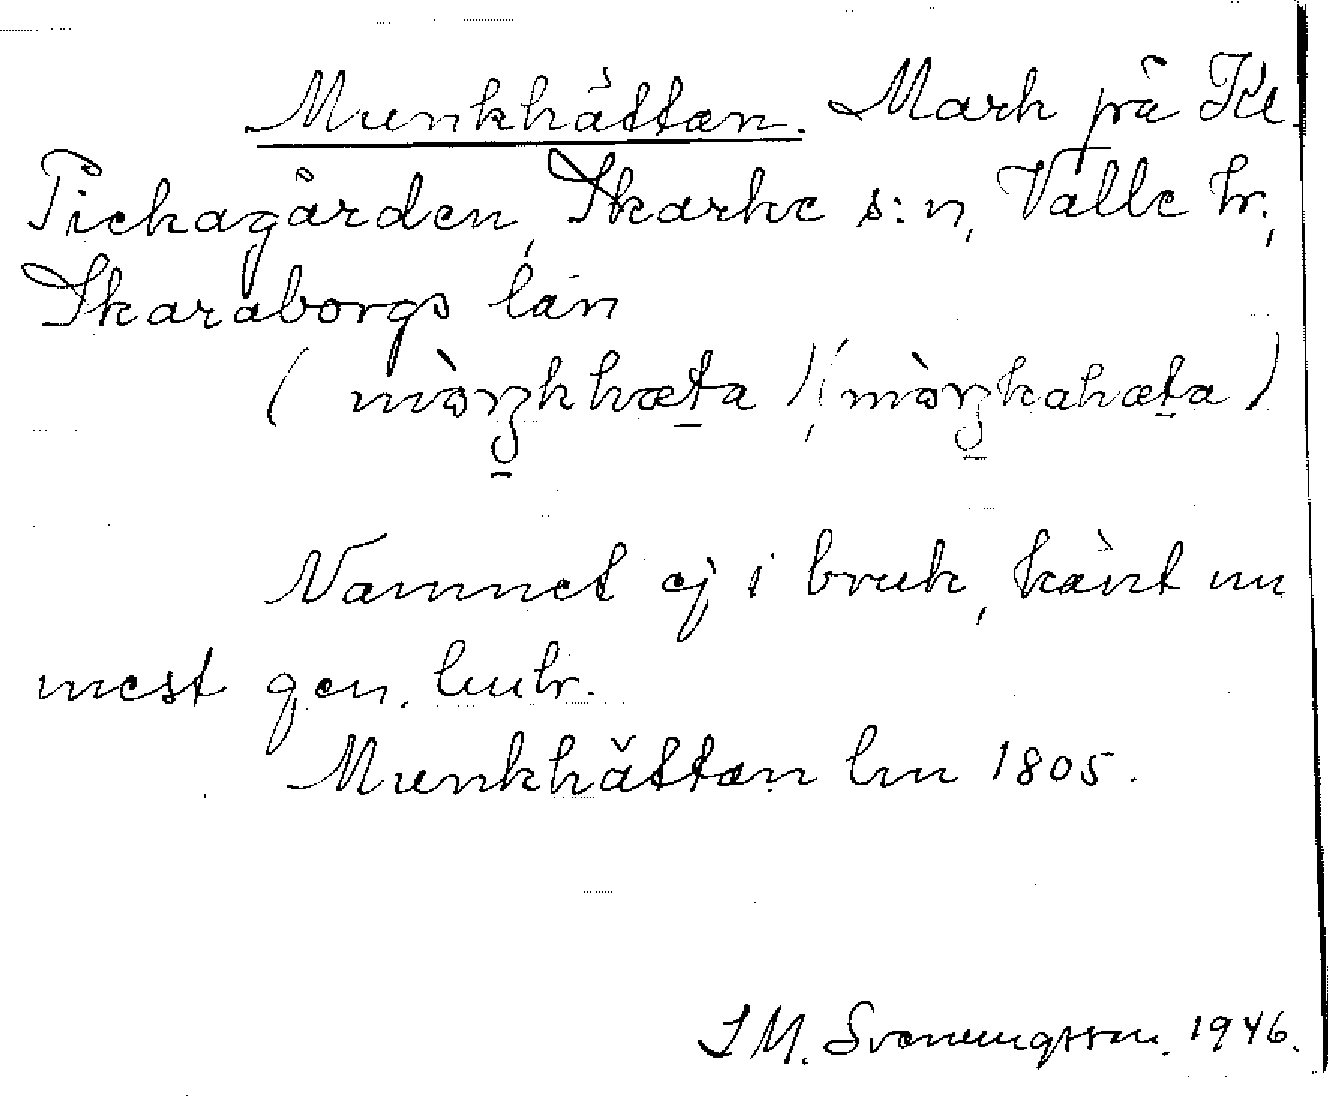 Munkhättan. Mark på Kl.
Pickagården, Skarke s:n, Valle hr.,
Skaraborgs län
( mòŋkhæta ) ( mòŋkahæta )
Namnet ej i bruk, känt nu
mest gen.
Munkhättan lm 1805.
S M. Svenungsson. 1946.